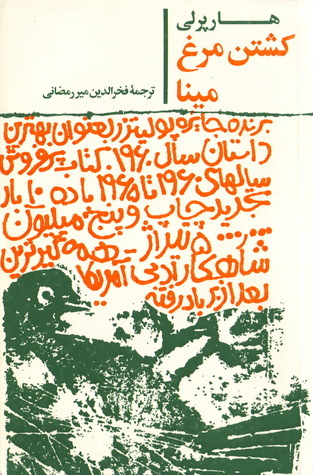 هارپرلی
کشتن مرغ
مینا
ترجمهٔ فخرالدین میررمضانی
برنده جایزه پولیتزر بعنوان بهترین
داستان سال ۱۹۶۰ کتاب پرفروش
سالهای ۱۹۶۰ تا ۱۹۶۵ با ده ۱۰ بار
تجدید چاپ و پنج میلیون
۵ تیراژ - همه گیرترین
شاهکار ادبی آمریکا
بعد از بر باد رفته